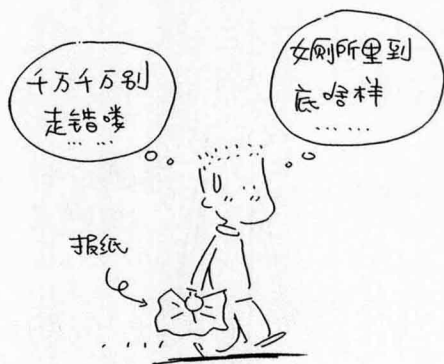 千万千万别
走错喽
……
女厕所里到
底啥样
……
报纸